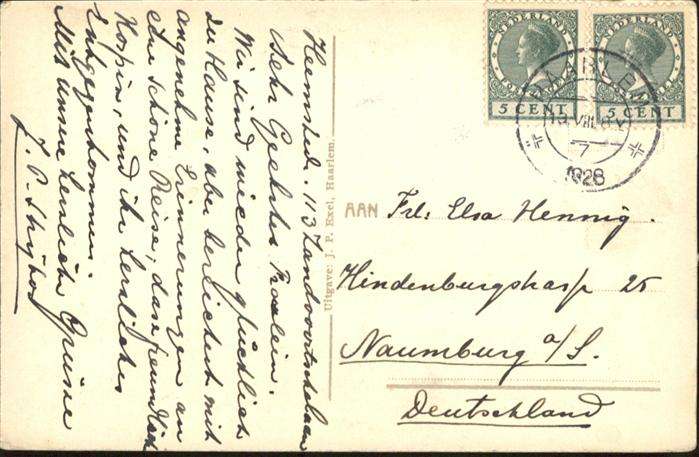 Heemstede. 113 Zandvoortschelaan
Sehr Geehrtes Fraelein.
Wir sind wieder glücklich
zu Hause, aber bereichert mit
angenehme Erinnerungen an
eine schöne Reise, das freundliche
Kospin, und ihr herzliches
Entgegenkommen
Mit unsere herzliche Grüsse
J. P.
Uitgave: J. P. Exel, Haarlem.
NEDERLAND
5 CENT
NEDERLAND
5 CENT
HAARLEM
VIII
7
1928
AAN Frl: Elsa Hennig.
Hindenburgstrasse 25
Naumburg a/S.
Deutschland